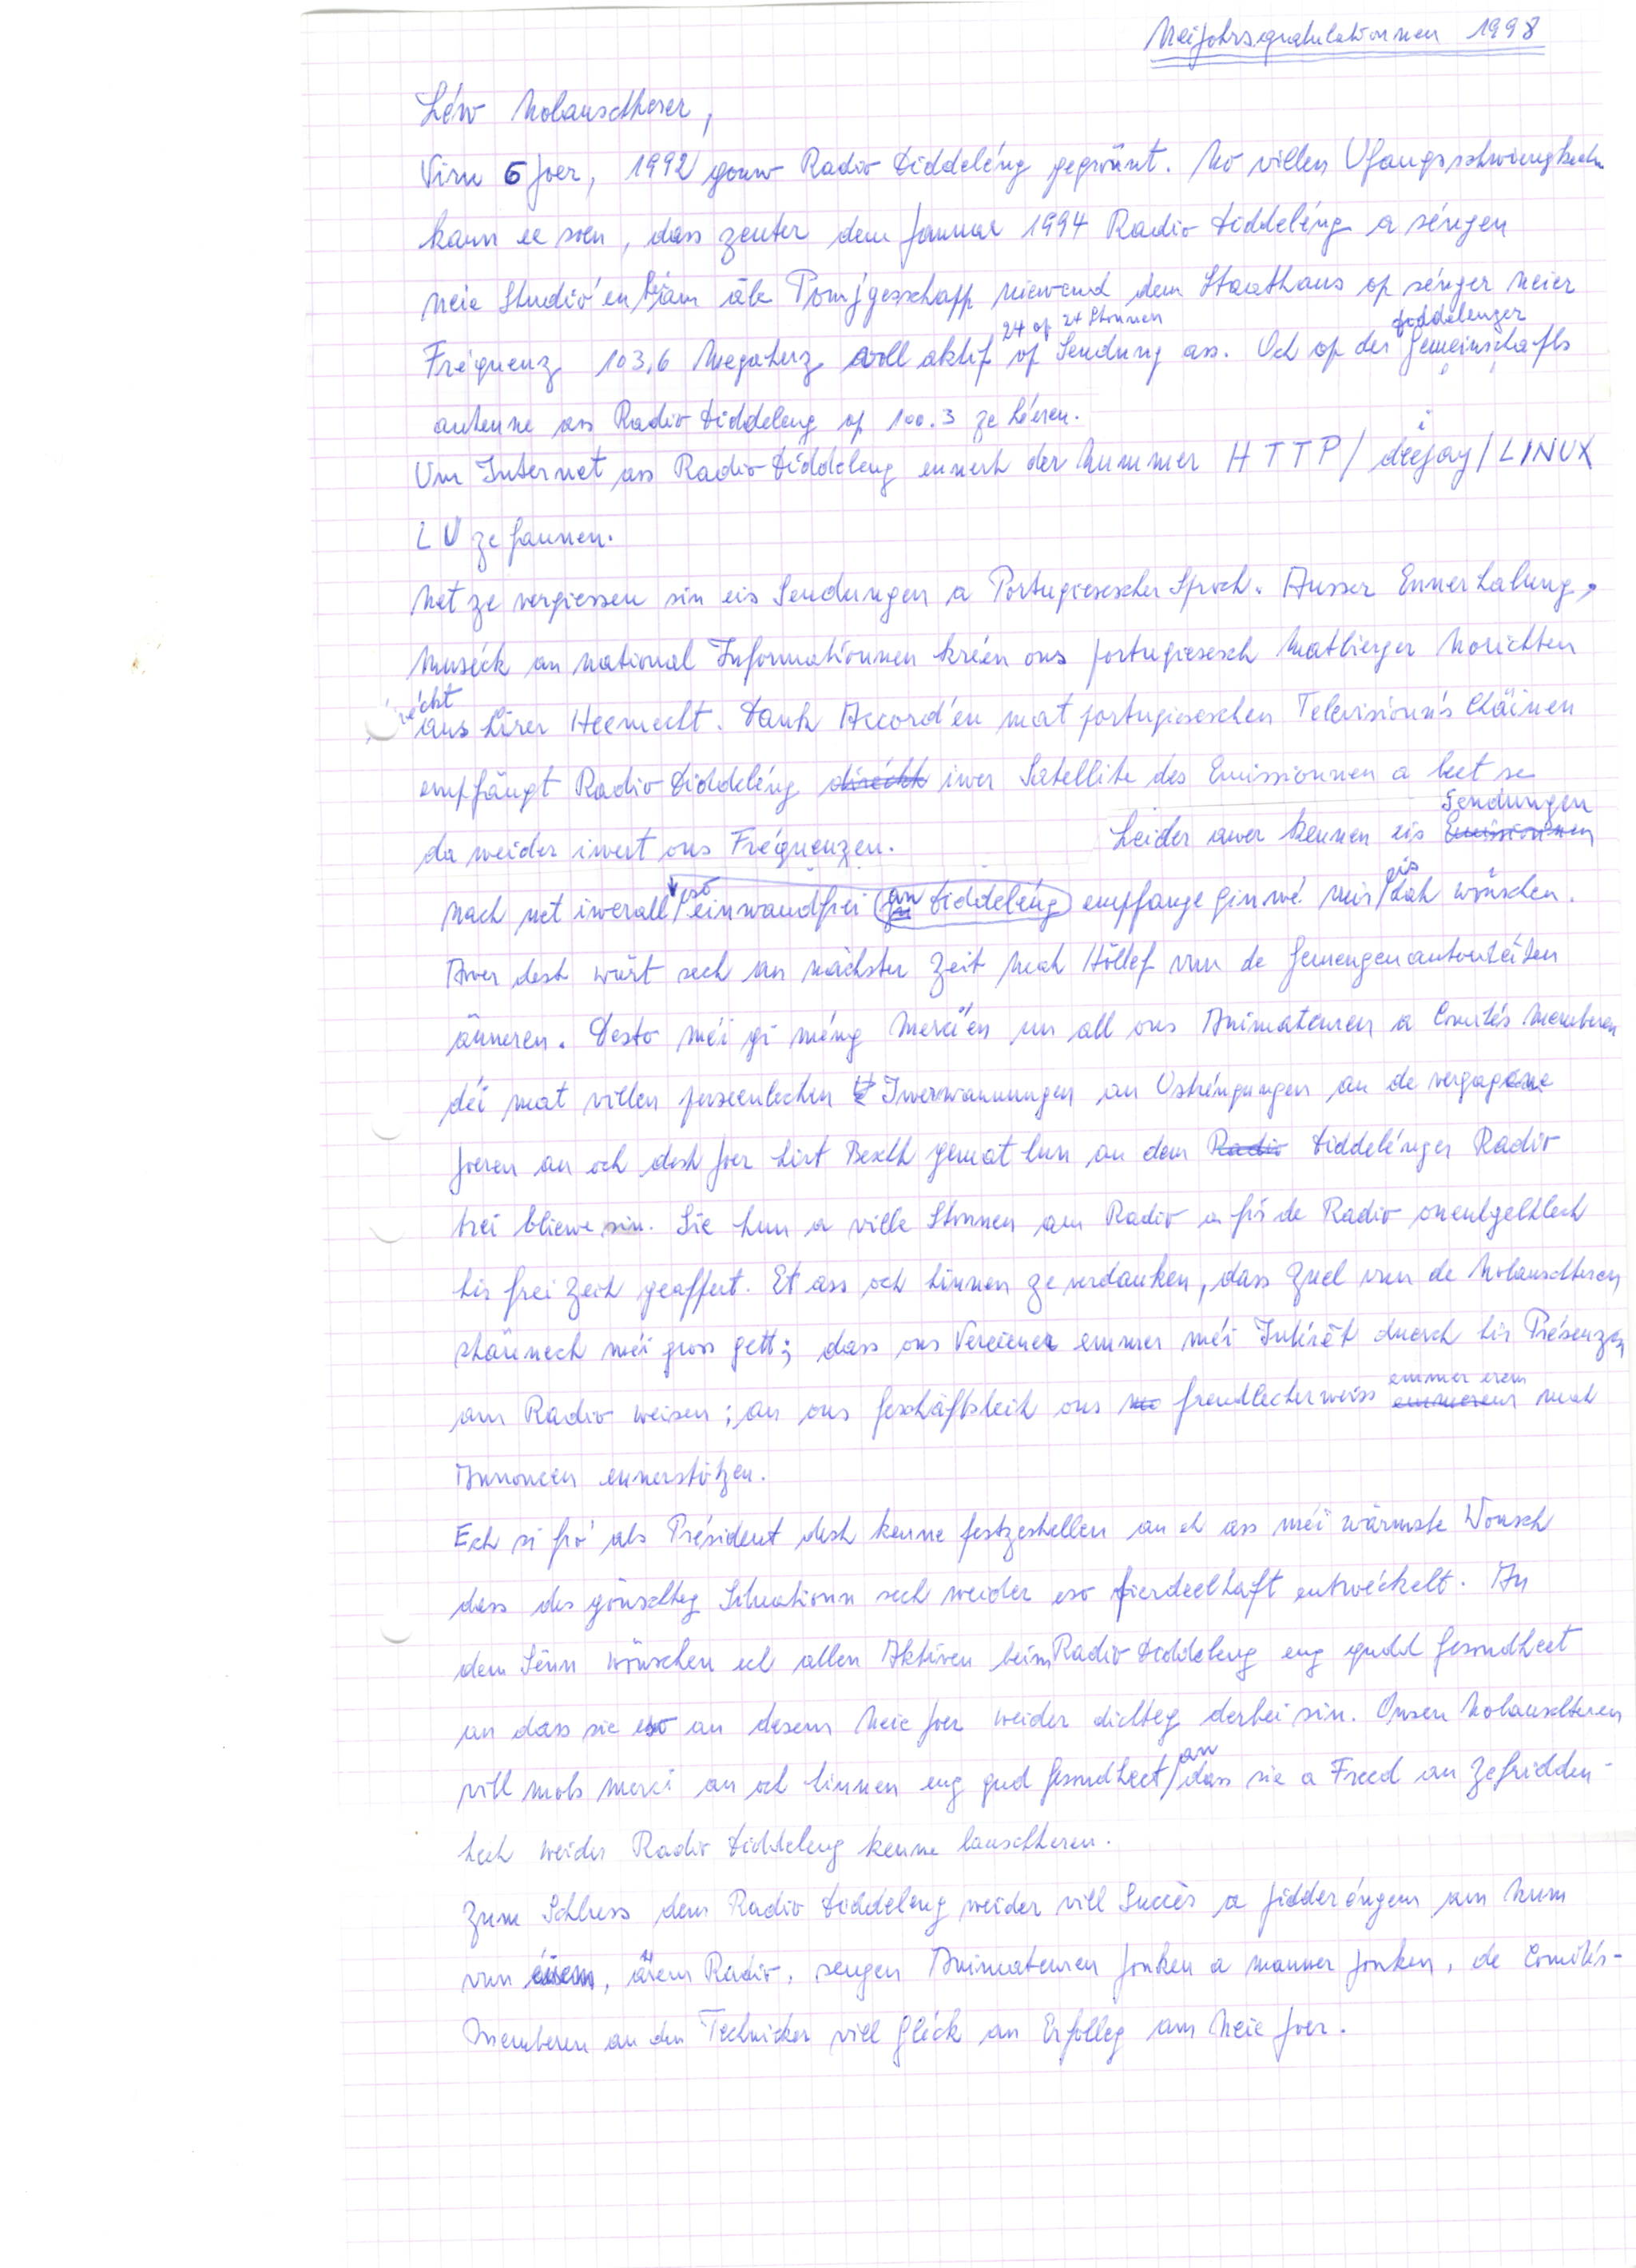 Neijohrsgratulatiounen 1998
Léw Nolauschterer,
Virun 6 Joer, 1992 gouw Radio Diddeléng gegrünt. No villen Ufangsschwiregkeeten
kann ee soen, dass zenter dem Januar 1994 Radio Diddeléng a séngen
neie Studio'en am ale Pomjgesschapp niewend dem Staathaus op sénger neier
24 op 24 Stonnen Diddelenger
Fréquenz 103,6 Megaherz voll aktif op Sendung ass. Och op der Gemeinschafts
antenne ass Radio Diddeleng op 100.3 ze héeren.
Um Internet ass Radio Diddeleng ennert der Nummer HTTP/ deejay/LINUX
LU ze fannen.
Net ze vergiessen sin eis Sendungen a Portugiesescher Sproch. Ausser Ennerhalung,
Muséck an national Informatiounen kréen ons portugiesesch Matbierger Norichten
récht
aus hirer Heemecht. Dank Accord'en mat portugieseschen Televisioun's Chäinen
empfängt Radio Diddeléng direckt iwer Satellite des Emissiounen a leet se
Sendungen
da weider iwert ons Fréquenzen. Leider awer kennen eis Emissiounen
eso eis
nach net iwerall einwandfrei an Diddeléng empfange gin wé mir dat wünschen.
Awer dest wärt sech an nächster Zeit mat Hëllef vun de Gemengenautoritéiten
änneren. Desto méi gi méng Merci'en un all ons Animateuren a Comités Memberen
déi mat villen perseenlechen Iwerwannungen an Ustréngungen an de vergagene
Joeren an och dest Joer hirt Bescht gemat hun an dem Radio Diddelénger Radio
trei bliewe sin. Sie hun a ville Stonnen am Radio a fir de Radio onentgeltlech
hir frei Zeit geaffert. Et ass och hinnen ze verdanken, dass Zuel vun de Nolauschteren
stännech méi gross gett; dass ons Vereiener emmer méi Intérêt duerch hir Présenzen
am Radio weisen; an ons Geschäftsleit ons frendlecherweiss emmer erem mat
Annoncen ennerstëtzen.
Ech si fro' als Président dest kenne festzestellen an et ass méi wärmste Wonsch
dass des gënschteg Situatioun sech weider eso fierdeelhaft entwéckelt. An
dem Sënn wënschen ech allen Aktiven beim Radio Diddeleng eng gudd Gesondheet
an dass sie eso an desem neie Joer weider dichteg derbei sin. Onsen Nolauschteren
an
vill mols merci an och hinnen eng gud Gesondheet dass sie a Freed an Zefridden-
heet weider Radio Diddeleng kenne lauschteren.
Zum Schluss dem Radio Diddeleng weider vill Succès a fidderéngem am Numm
vun äiem, ärem Radio, sengen Animateuren Jonken a manner Jonken, de Comités-
Memberen an den Techniker viel Gléck an Erfolleg am neie Joer.